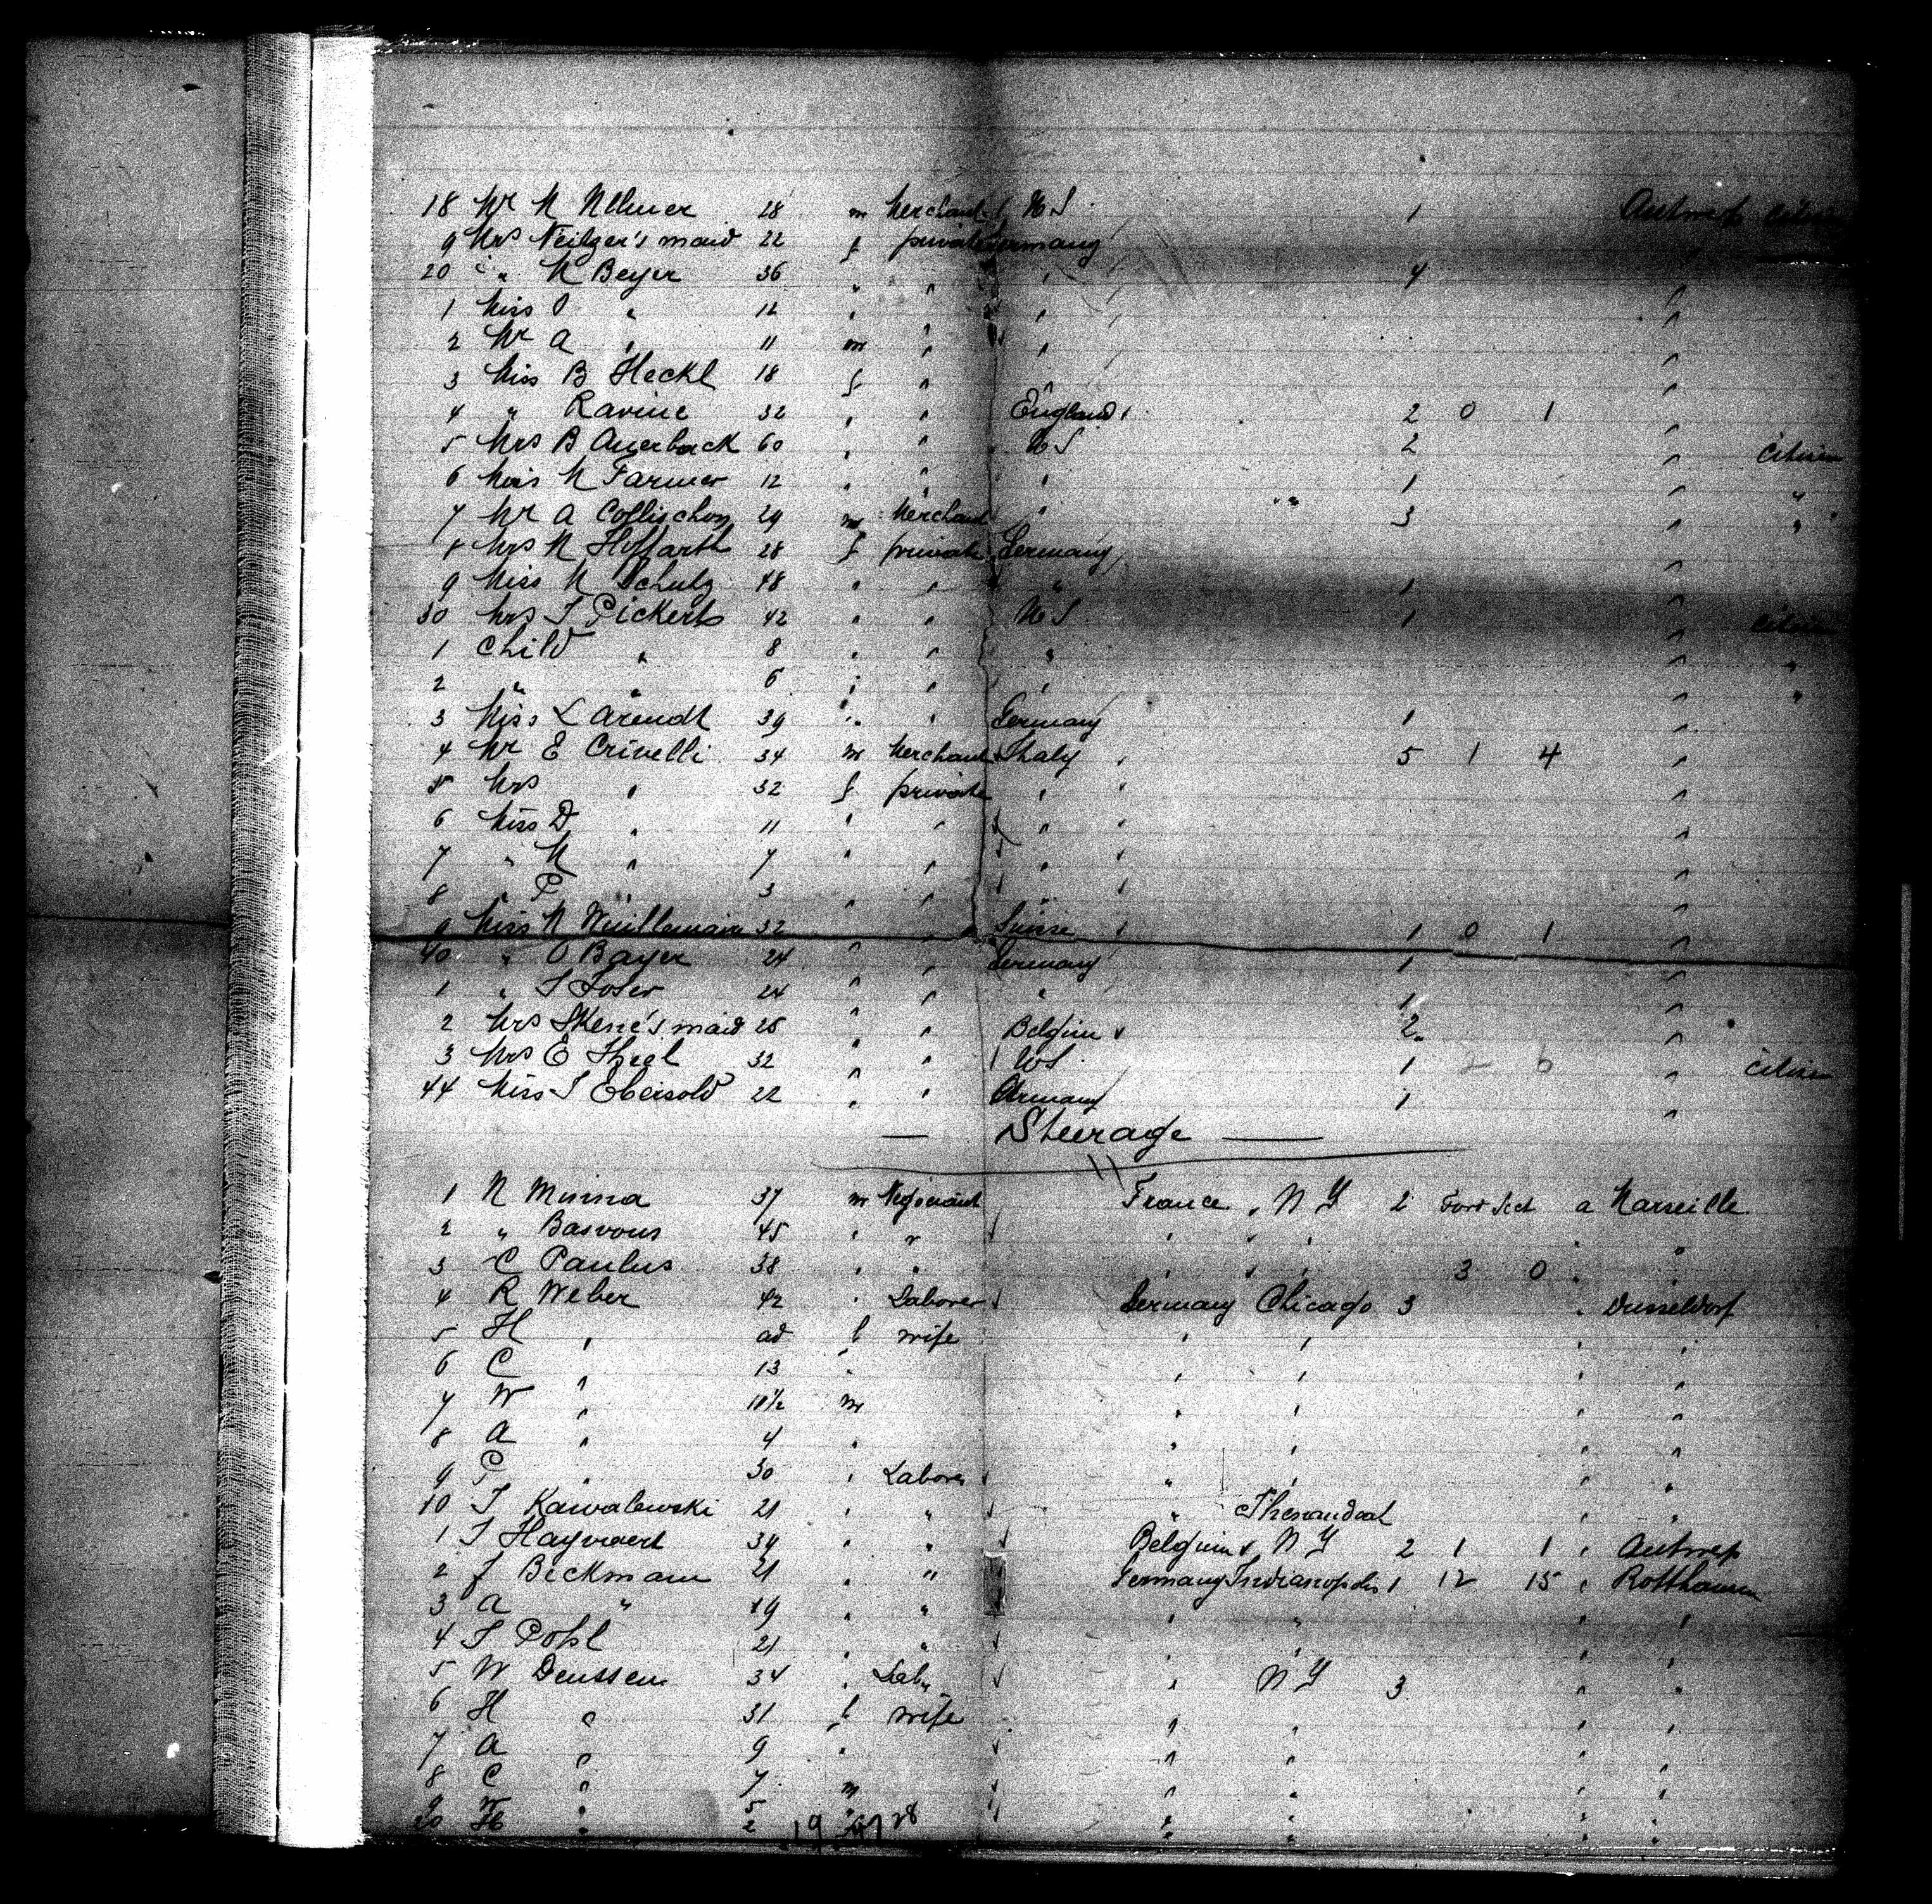 18 Mr M Ullmer 28 m Merchant U S 1 Antwerp citizen
9 Mrs Neilzer's maid 22 f private Germany
20 " M Beyer 36 " " " 4 "
1 Miss O " 12 " " " "
2 Mr A " 11 m " " "
3 Miss B Heckl 18 f " "
4 " Ravine 32 " " England 2 0 1 "
5 Mrs B Auerback 60 " " U S 2 " citizen
6 Miss M Farmer 12 " " " 1 " "
7 Mr A Collischon 29 m Merchant " " " 3 " "
8 Mrs M Hoffarth 28 f private Germany "
9 Miss M Schulz 48 " " " 1 "
30 Mrs S Pickerts 42 " " U S 1 " citizen
1 Child " 8 " " " " "
2 " " 6 " " " " "
3 Miss L Arendt 39 " " Germany 1 "
4 Mr E Crivelli 34 m Merchant Italy 5 1 4 "
5 Mrs " 32 f private " "
6 Miss D " 11 " " " "
7 " M " 7 " " " "
8 " P " 3 " " " "
9 Miss M Wuillemain 32 " Suisse 1 0 1 "
40 " O Bayer 24 " " Germany 1 "
1 " 24 " " " 1 "
2 Mrs Skene's maid 25 " " Belgium 2 "
3 Mrs E Thiel 32 " " US 1 2 6 " citizen
44 Miss S Ebersold 22 " " Germany 1 "
— Steerage —
1 N Minna 37 m Negociant France N Y 2 a Marseille
2 " Basvous 45 " " " " " "
3 C Paulus 38 " " " " 3 0 " "
4 R Weber 42 " Laborer Germany Chicago 3 " Dusseldorf
5 H " ad f wife " " " "
6 C " 13 " " " " "
7 W " 10½ m " " " "
8 A " 4 " " " " "
9 P " 30 " Laborer " " " "
10 J Kawalewski 21 " " " Shenandoal " "
1 J Hayvaert 34 " " Belgium N Y 2 1 1 " Antwerp
2 J Beckmann 21 " " Germany Indianopolis 1 12 15 " Rotthausen
3 A " 19 " " " " " "
4 J Pohl 21 " " " " " "
5 W Deussen 34 " Lab " N Y 3 " "
6 H " 31 f wife " " " "
7 A " 9 " " " " "
8 C " 7 m " " " "
9 W " 5 " " " " "
20 H " 2 " " " "